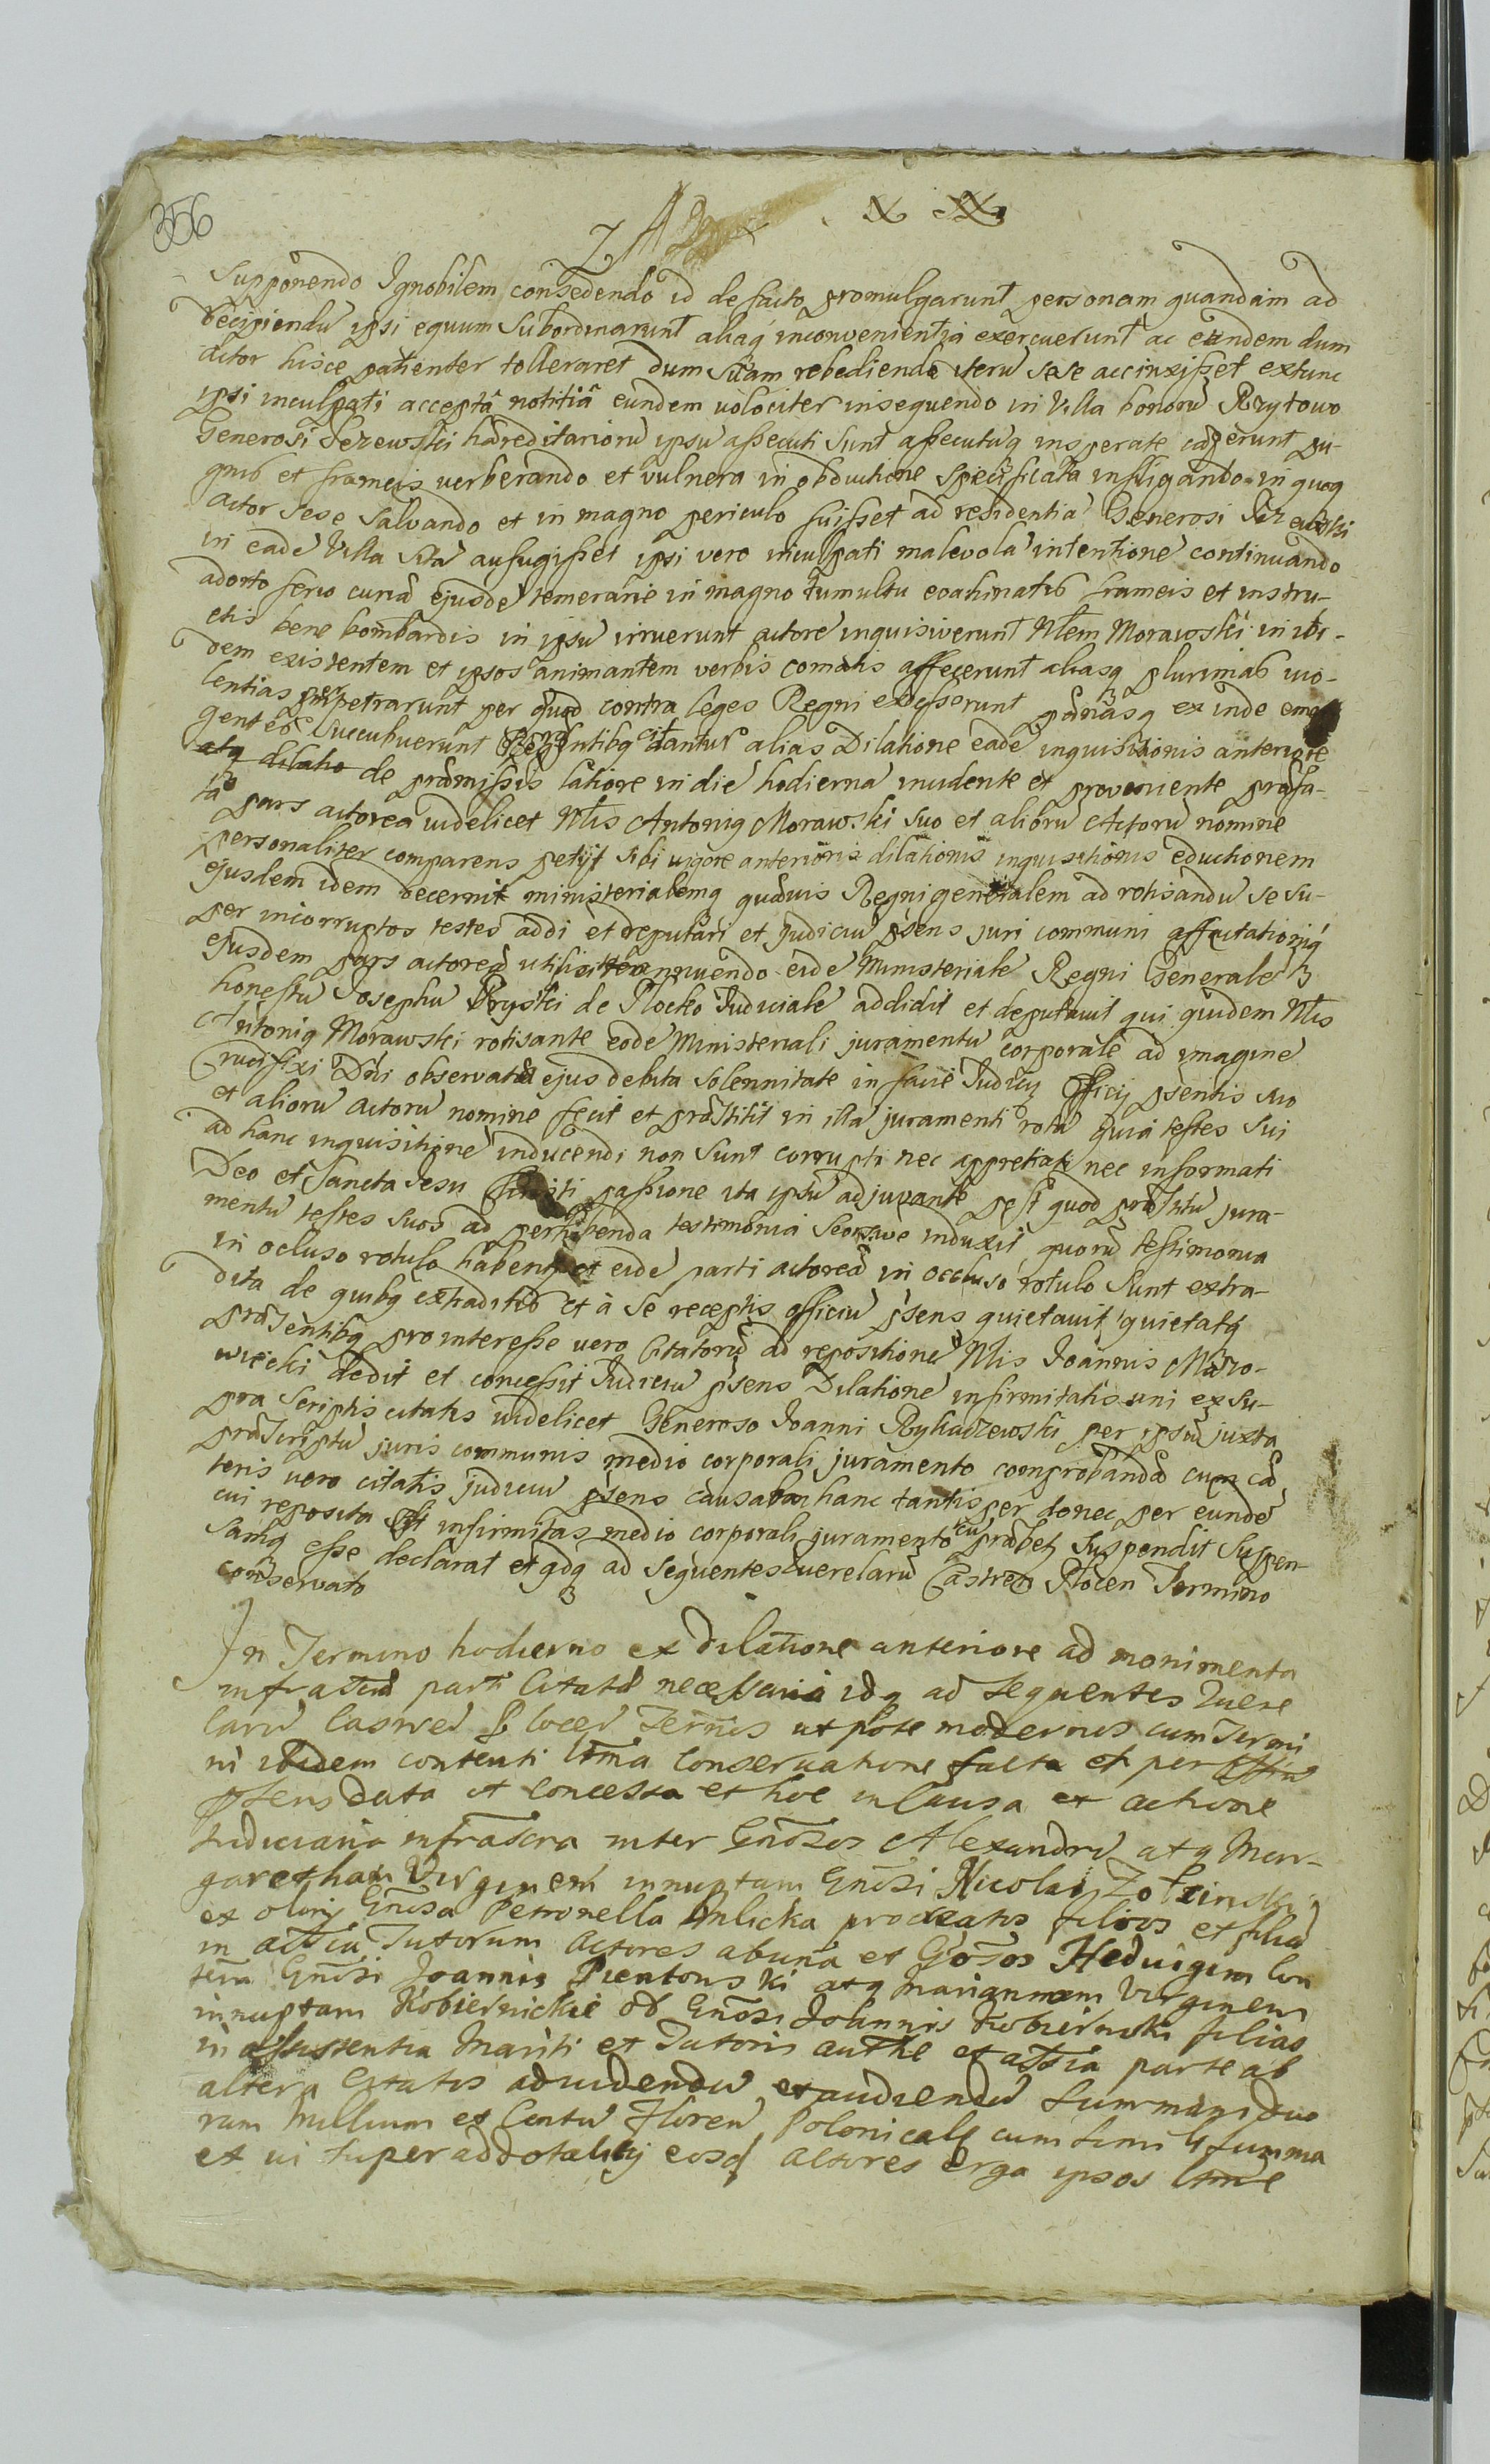 356
Supponendo Ignobilem consedendo id de facto promulgarunt personam quandam ad
decipiendũ ipsi equum subordinarunt aliaq inconvenientia exercuerunt ac eundem dum
actor hisce patienter tolleraret dum suam rebediendo iterũ sese accinxisset extunc
ipsi inculpati acceptâ notitiâ eundem uolociter insequendo in Villa bonorũ Rzytowo
Generosi Jezewski hæreditariorũ ipsũ assecuti sunt assecutuq insperate cæperunt pu-
gnis et frameis verberando et vulnera in obductione specificata infligando in quoq
actor sese salvando et in magno periculo fuisset ad residentiã Generosi Jezewski
in eadẽ Villa sitã aufugisset ipsi vero inculpati malevolã intentionẽ continuando
adorto ferio curiã ejusdẽ temerarie in magno tumultu evaginatis frameis et instru-
ctis bene bombardis in ipsũ irruerunt actorẽ inquisiverunt Nlem Morawski in ibi-
dem existentem et ipsos animantem verbis affecerunt aliasq plurimas vio-
lentias perpetrarunt per quod contra leges Regni excesserunt pænasq ex inde
gentes succubuerunt citantur alias Dilatione eadẽ inquisitionis anteriore
de præmissis latiore in die hodierna incidente et proveniente præfa-
ta pars actorea videlicet Nlis Antonig Morawski suo et aliorũ Actorũ nomine
personaliter comparens petijt sibi vigore anterioris dilationis inquisitionis eductionem
ejusdem idem decernit ministerialemq quævis Regni generalem ad rotisandũ se su-
per incorruptos testes addi et deputari et Judiciũ psens juri communi affectationiq
ejusdem pars actoreæ annuendo eidẽ Ministerialẽ Regni Generalẽ
honestũ Josephũ Bryski de Plocko Judicialẽ addidit et deputavit qui quidem Nlis
Antonig Morawski rotisante eodẽ Ministeriali juramentũ corporale ad imaginẽ
Crucifixi Dni observata ejus debita solennitate in facie Judicij Officij psentis suo
et aliorũ actorũ nomine fecit et præstitit in illa juramenti rota quia testes sui
ad hanc inquisitionẽ inducendi non sunt corrupti nec appretiati nec informati
Deo et Sancta Jesu Christi passione ita ipsũ adjuvante post quod præstitũ jura-
mentũ testes suos ad perhibenda testimonia seorsive induxit quorũ testimonia
in ocluso rotulo habent et eidẽ parti actoreæ in occluso rotulo sunt extra-
dita de quibq extraditis et à se receptis officiũ psens quietavit quietatq
præsentibq pro interesse vero citatorũ ad repositionẽ Nlis Joannis
wiecki dedit et concessit Judiciũ psens Dilationẽ infirmitatis uni ex su-
pra scriptis citatis videlicet Generoso Joanni Rykaczewski per ipsũ juxta
præscriptũ juris communis medio corporali juramento comprobandã cum cæ-
teris vero citatis judiciũ psens causam hanc tantisper donec per eundẽ
cui reposita est infirmitas medio corporali juramento probet suspendit suspen-
samq esse declarat et ad sequentes querelarũ Castren Plocen Termino
conservato
In Termino hodierno ex dilatione anteriore ad monimenta
parti Citatæ necessaria idq ad sequentes Quere
larũ Castren Plocen Ternis utpote modernus cum Termi
ni ibidem contenti conservatione facta et per
psens data et concessa et hoc in Causa et actione
Judiciaria infrascra inter Gnosos Alexandrũ atq Mar-
garetham Virginem innuptam Gnosi Nicolai Zołzinski
ex olim Gnosa Petronella procreatos filios et filiã
in Tutorum Actores ab una et Gnosos Hedvigim Con
Gnosi Joannis Pientowski atq Mariannam Virginem
innuptam Kobiernickie ol Gnosi Joannis Kobiernicki filias
in assistentia Mariti et Tutoris parte ab
altera Citatos ad videndũ et audiendũ summam duo
rum Millium et Centũ Floren Polonicaliũ cum simili summa
et vi superaddotalitij eosd Actores erga ipsos